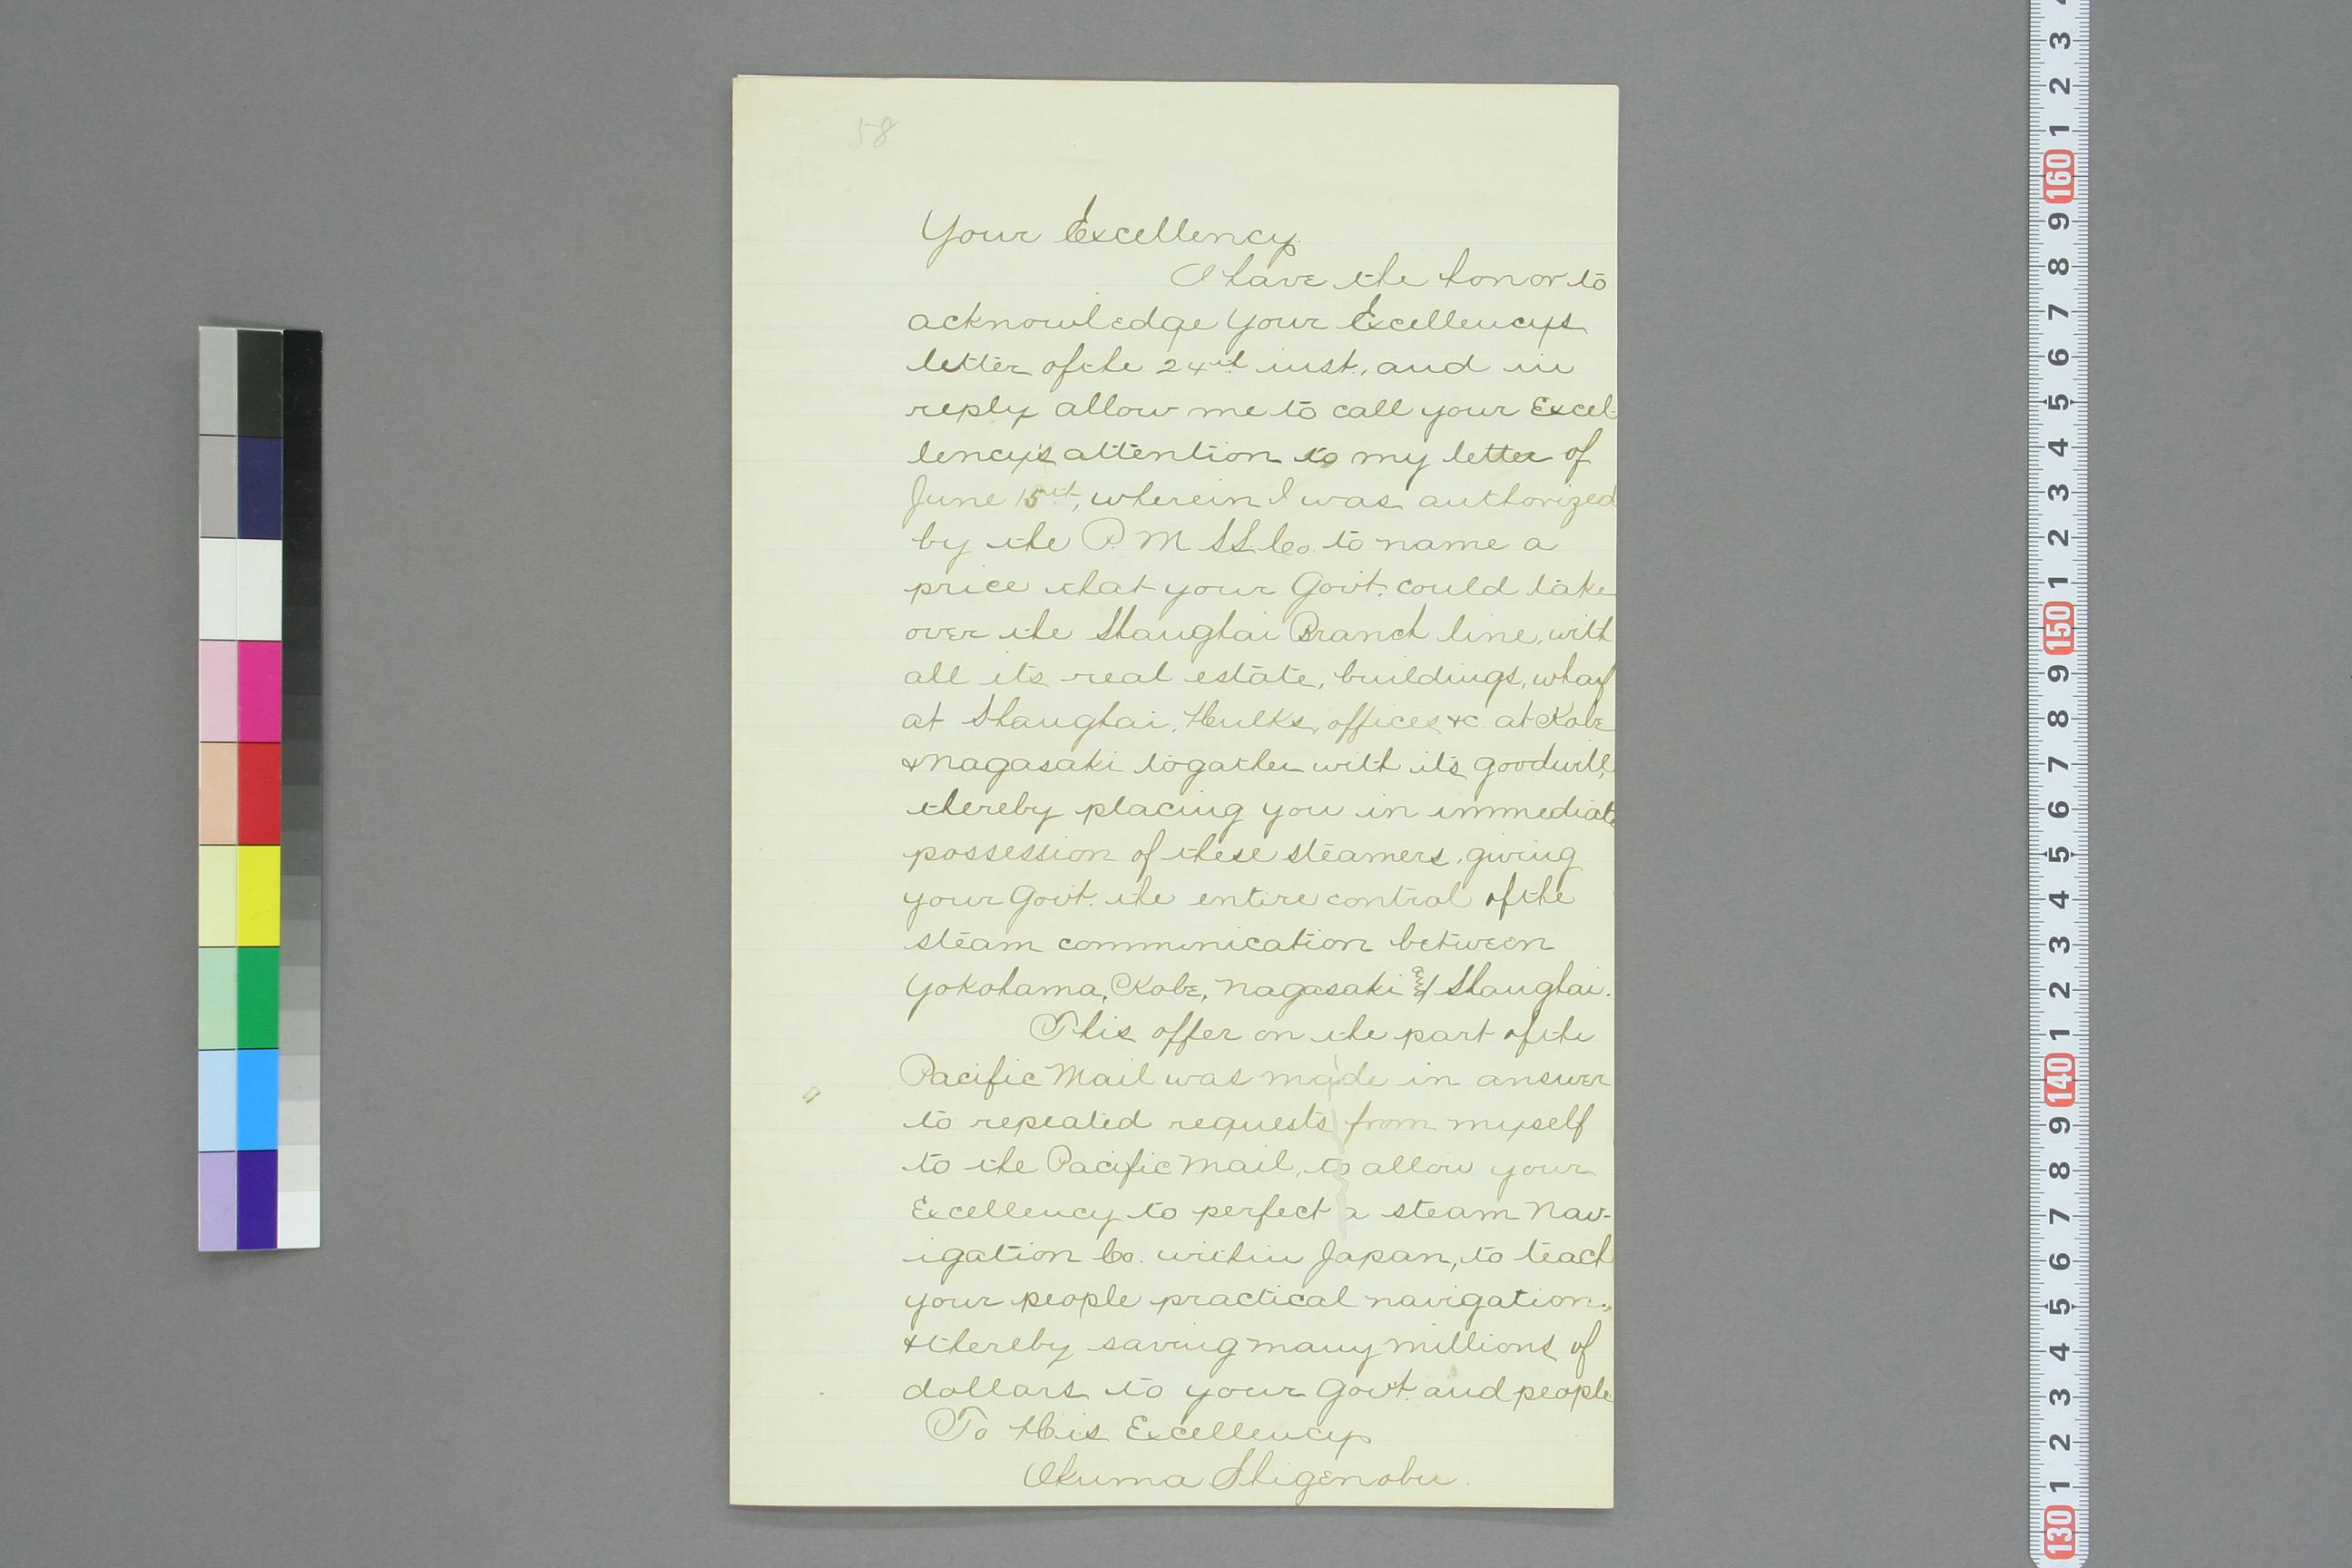 58
Your Excellency
I have the honor to
acknowledge Your Excellency's
letter of the 24th inst., and in
reply allow me to call your Excel-
lency's attention to my letter of
June 15th, wherein I was authorized
by the P. M SS. Co. to name a
price that your Govt. could take
over the Shanghai Branch line, with
all its real estate, buildings, wharf
at Shanghai, Hulks, offices &c. at Kobe
& Nagasaki togather with its goodwill,
thereby placing you in immediate
possession of these steamers, giving
your Govt. the entire control of the
steam communication between
Yokohama, Kobe, Nagasaki and Shanghai.
This offer on the part of the
Pacific Mail was made in answer
to repeated requests from myself
to the Pacific Mail, to allow your
Excellency to perfect a steam Nav-
igation Co. within Japan, to teach
your people practical navigation,
& thereby saving many millions of
dollars to your Govt. and people
To His Excellency
Okuma Shigenobu.
3
2
1
160
9
8
7
6
5
4
3
2
1
150
9
8
7
6
5
4
3
2
1
140
9
8
7
6
5
4
3
2
1
130